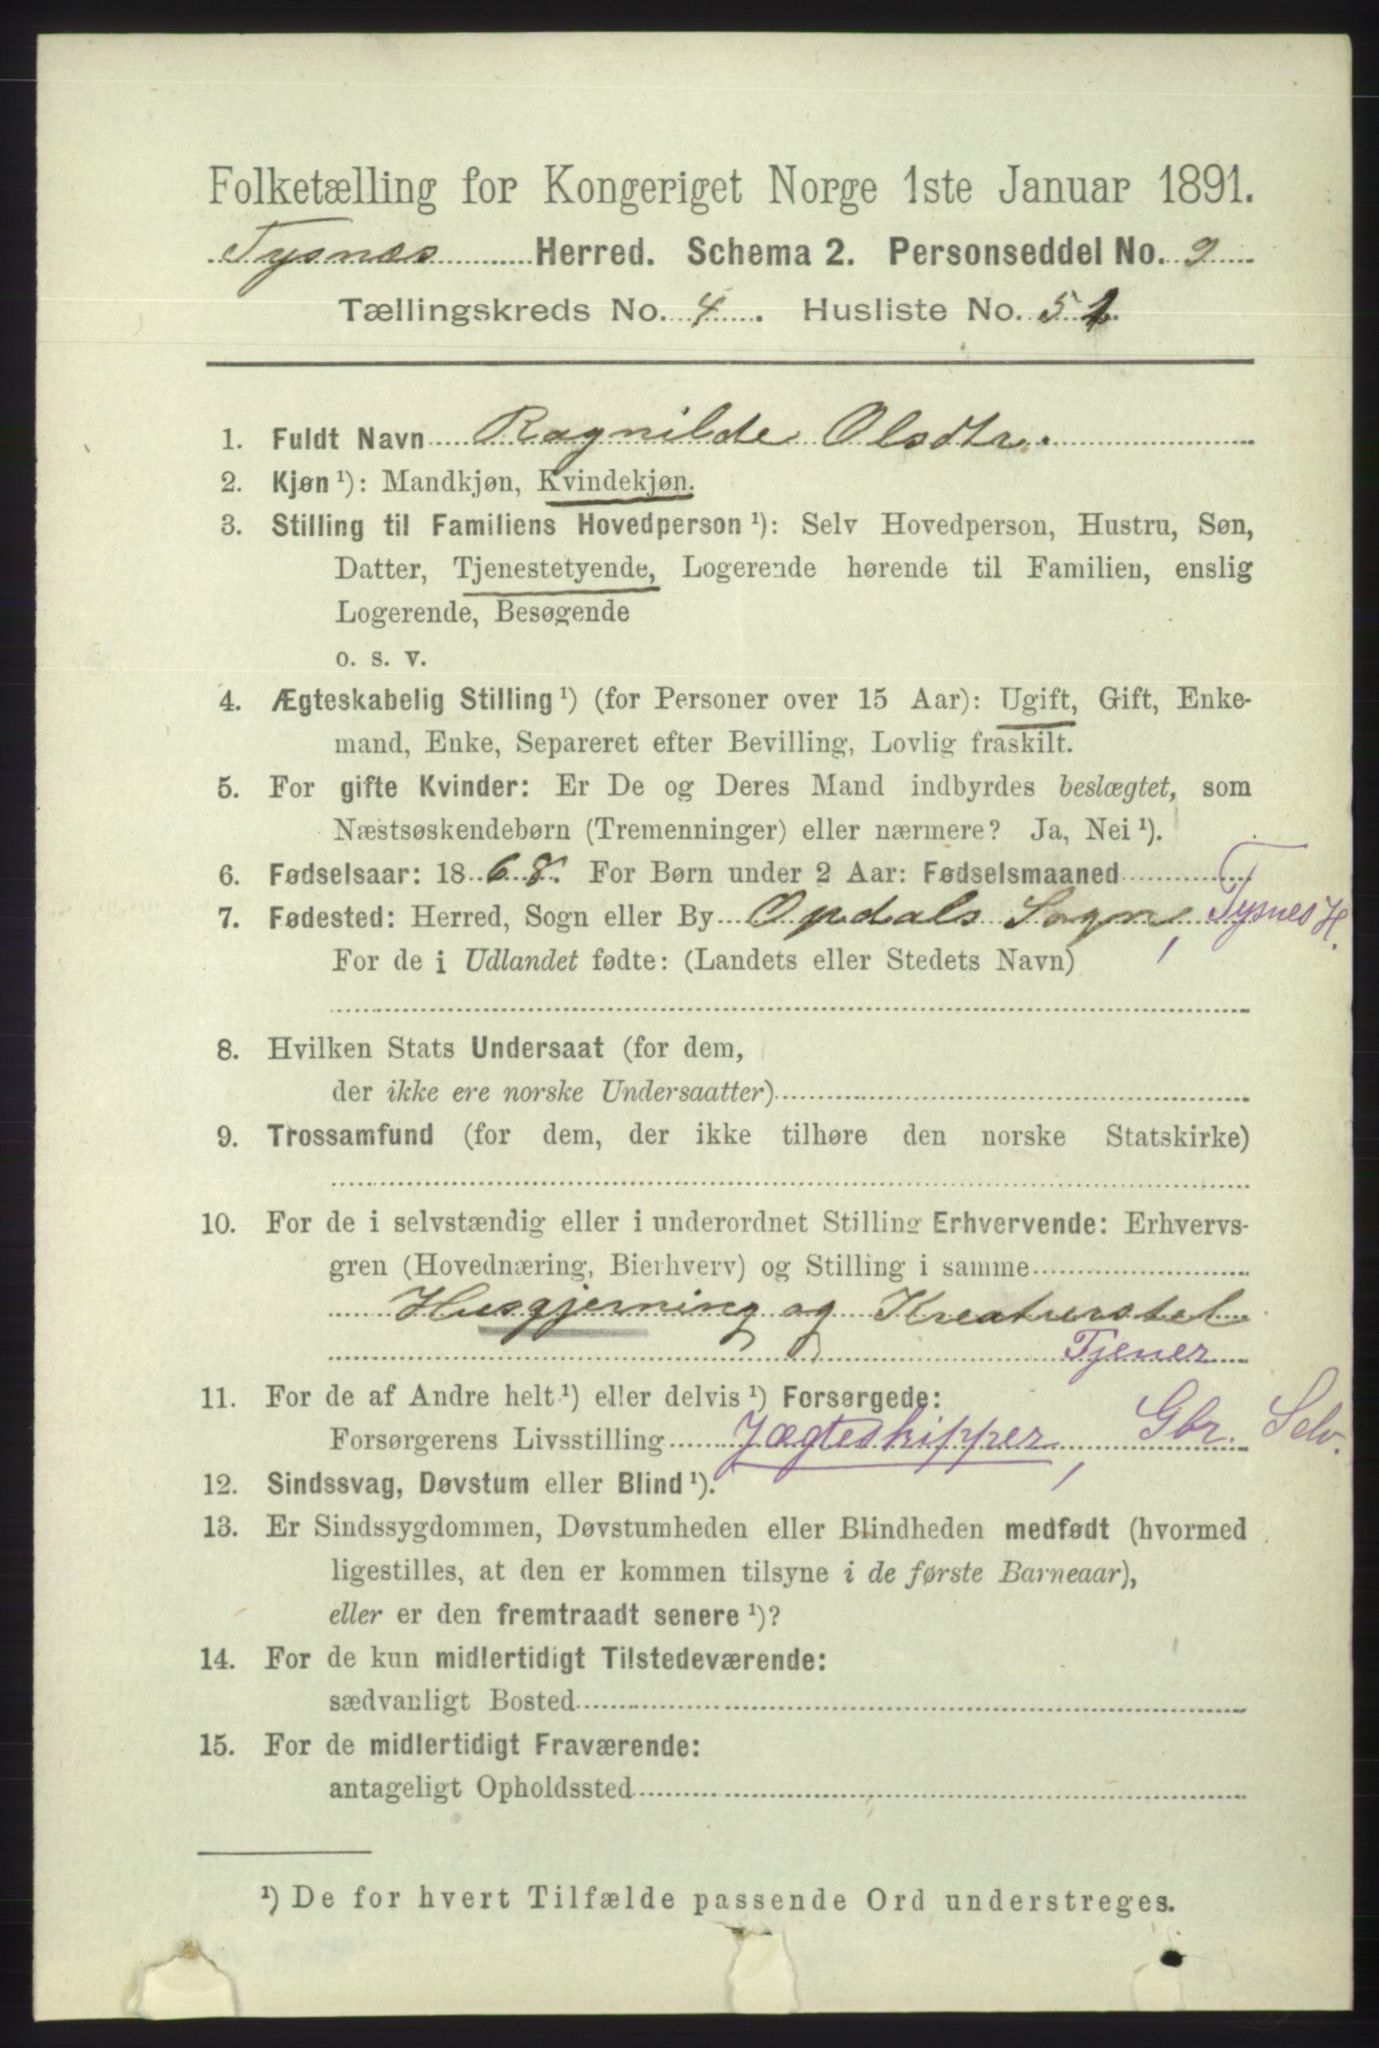 Folketælling for Kongeriget Norge 1ste Januar 1891.
Tysnæs Herred. Schema 2. Personseddel No. 9
Tællingskreds No. 4. Husliste No. 51.
1. Fuldt Navn Ragnilde Olsdtr.
2. Kjøn ¹): Mandkjøn, Kvindekjøn.
3. Stilling til Familiens Hovedperson ¹): Selv Hovedperson, Hustru, Søn,
Datter, Tjenestetyende, Logerende hørende til Familien, enslig
Logerende, Besøgende
o. s. v.
4. Ægteskabelig Stilling ¹) (for Personer over 15 Aar): Ugift, Gift, Enke-
mand, Enke, Separeret efter Bevilling, Lovlig fraskilt.
5. For gifte Kvinder: Er De og Deres Mand indbyrdes beslægtet, som
Næstsøskendebørn (Tremenninger) eller nærmere? Ja, Nei ¹).
6. Fødselsaar: 1868. For Børn under 2 Aar: Fødselsmaaned
7. Fødested: Herred, Sogn eller By Opdals Sogn, Tysnes H.
For de i Udlandet fødte: (Landets eller Stedets Navn)
8. Hvilken Stats Undersaat (for dem,
der ikke ere norske Undersaatter)
9. Trossamfund (for dem, der ikke tilhøre den norske Statskirke)
10. For de i selvstændig eller i underordnet Stilling Erhvervende: Erhvervs-
gren (Hovednæring, Bierhverv) og Stilling i samme
Husgjerning og Kreaturstel
Tjener
11. For de af Andre helt ¹) eller delvis ¹) Forsørgede:
Forsørgerens Livsstilling Jægteskipper, Gbr. Selv.
12. Sindssvag, Døvstum eller Blind ¹).
13. Er Sindssygdommen, Døvstumheden eller Blindheden medfødt (hvormed
ligestilles, at den er kommen tilsyne i de første Barneaar),
eller er den fremtraadt senere ¹)?
14. For de kun midlertidigt Tilstedeværende:
sædvanligt Bosted
15. For de midlertidigt Fraværende:
antageligt Opholdssted
¹) De for hvert Tilfælde passende Ord understreges.